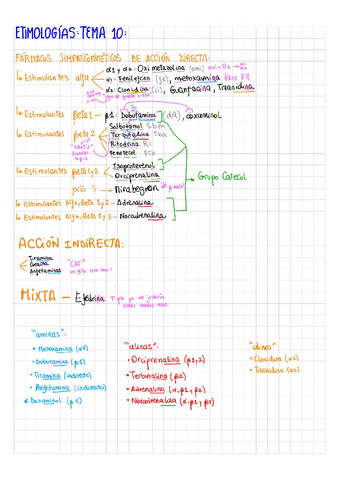 ETIMOLOGÍAS: TEMA 10:
FÁRMACOS SIMPATICOMIMÉTICOS DE ACCIÓN DIRECTA:
↳ Estimulantes alfa
α1 y α2: Oximetazolina (oxi)
α1: Fenilefrina (fe), metoxamina
α2: Clonidina (cli), Guanfacina, Tizanidina
↳ Estimulantes beta 1 - β1: Dobutamina (da),
↳ Estimulantes beta 2
Salbutamol Sbm
Terbutalina Tba
Ritodrina Ri
Fenoterol
↳ Estimulantes beta 1,2
Isoproterenol
Orciprenalina
Grupo Catecol
Mirabegron
↳ Estimulantes Alfa, Beta 1 y 2 - Adrenalina
↳ Estimulantes Alfa, Beta 1 y 3 - Noradrenalina
ACCIÓN INDIRECTA:
Tiramina
Cocaína
Anfetaminas
"CAT"
MIXTA - Efedrina
"aminas":
• Metoxamina
• Dobutamina (β1)
• Tiramina (indirecto)
• Anfetamina (indirecto)
"alinas":
• Orciprenalina (β1,2)
• Terbutalina (β2)
• Adrenalina (α, β1 y β2)
• Noradrenalina (α, β1 y β3)
"idinas"
• Clonidina (α2)
• Tizanidina (α2)